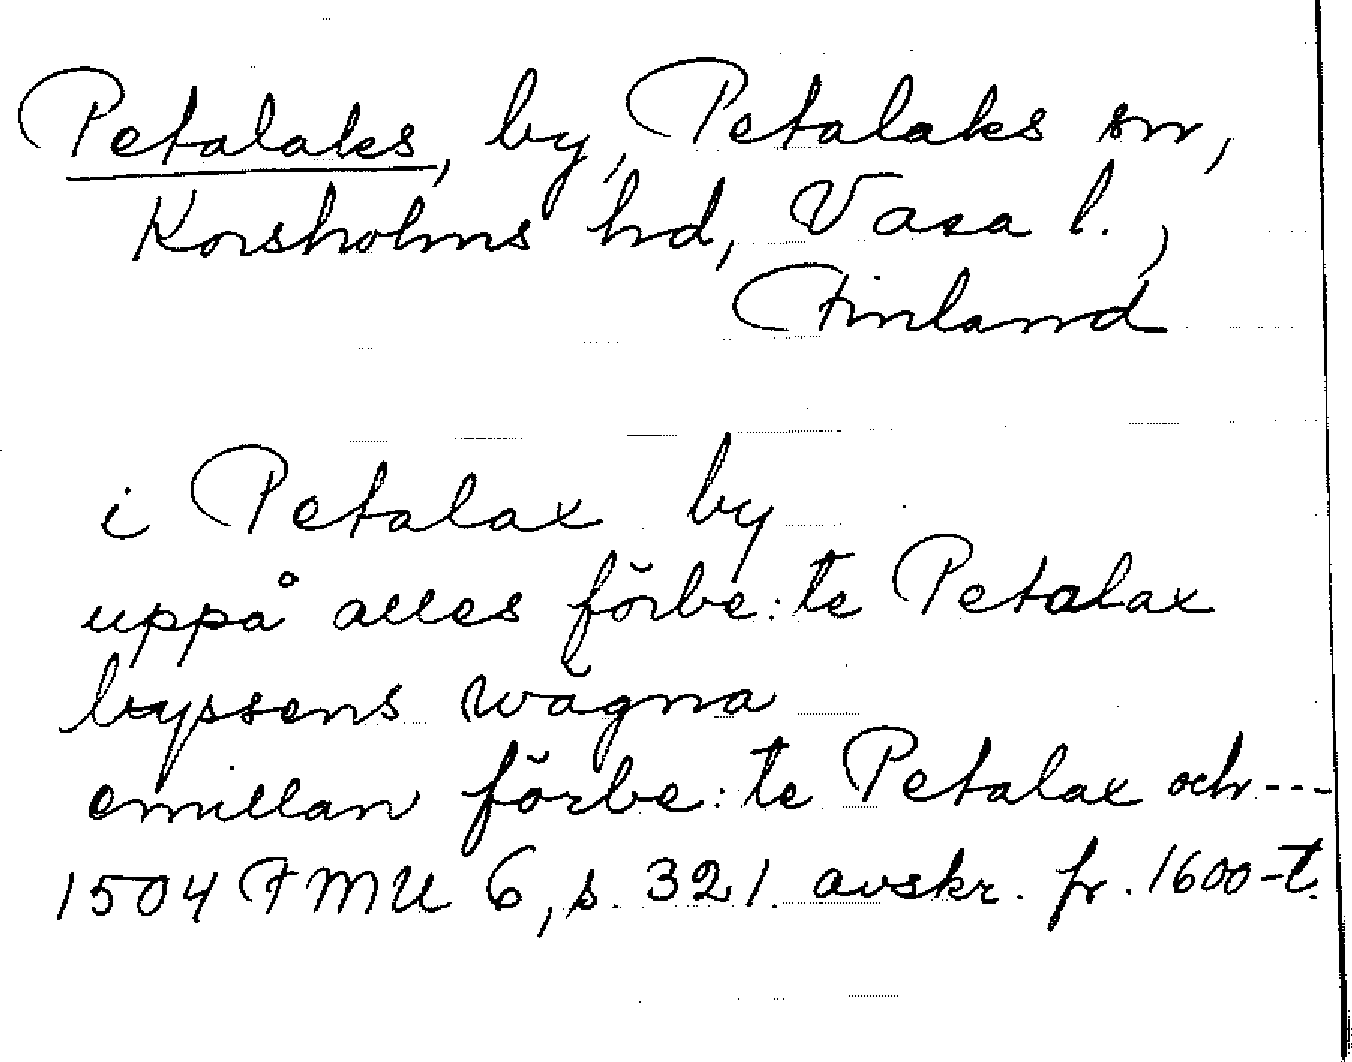 Petalaks, by, Petalaks sn,
Korsholms hd, Vasa l.,
Finland
i Petalax by
uppå alles förbe:te Petalax
byssens wägna
emillan förbe:te Petalax och---
1504 FMU 6, s. 321. avskr. fr. 1600-t.